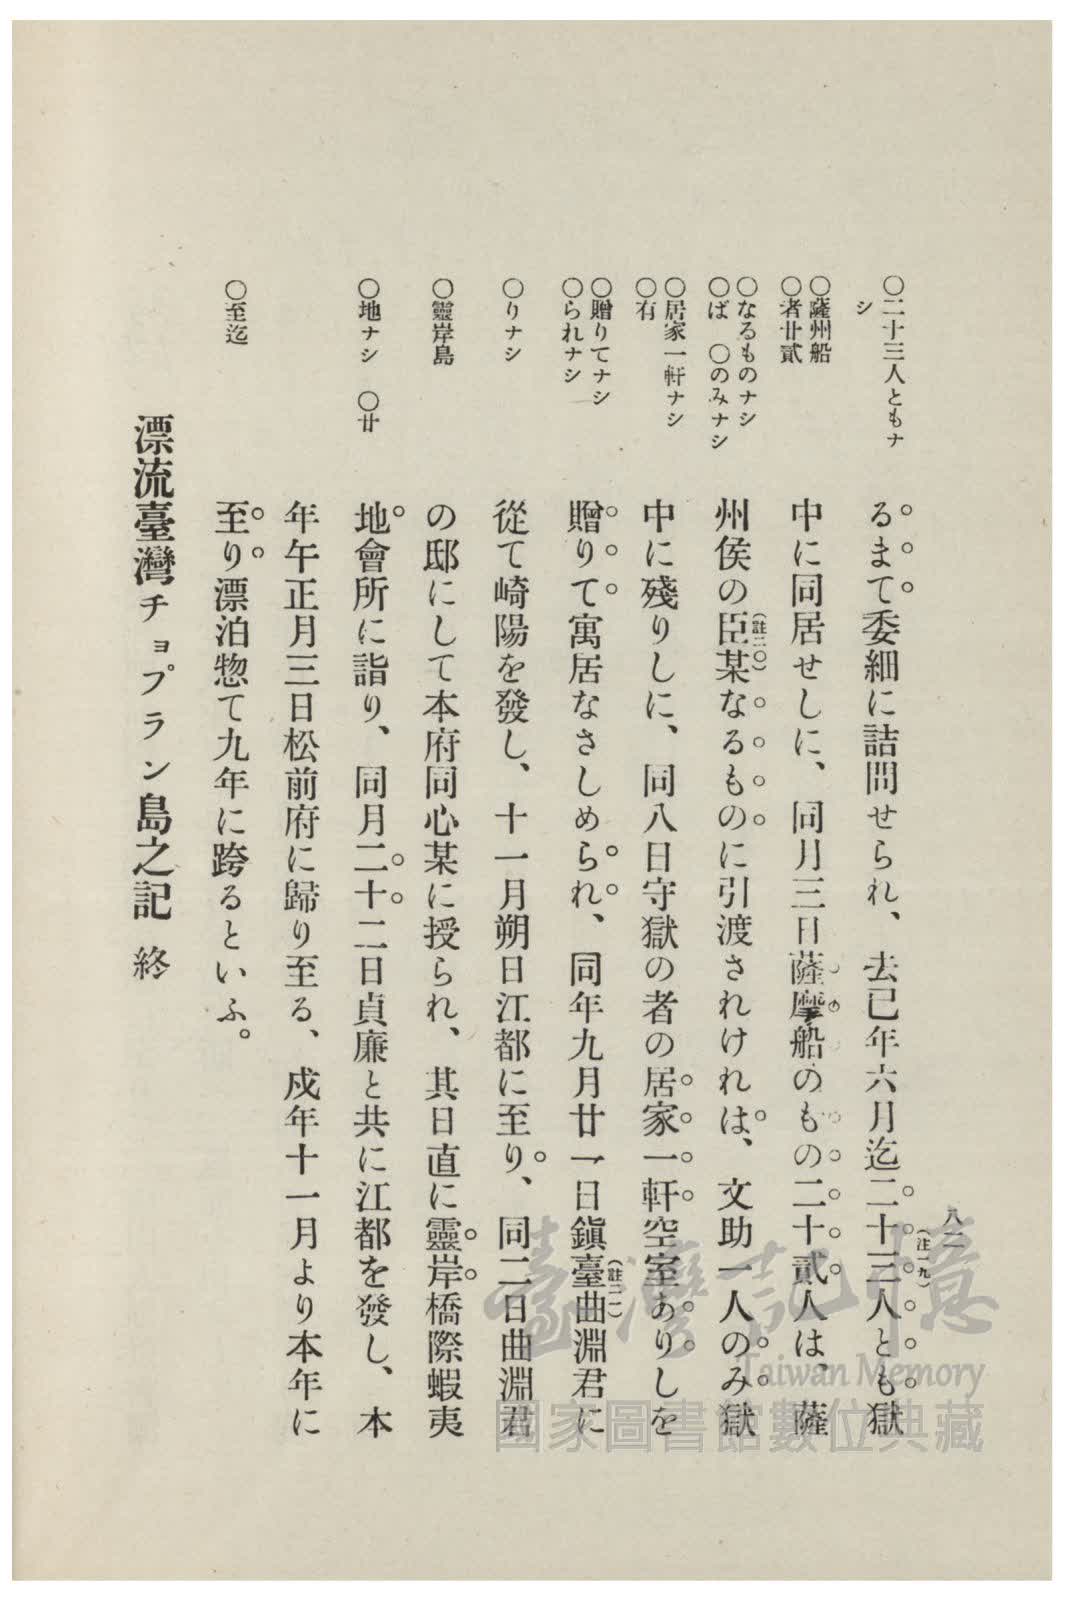 八二
○二十三人ともナ
シ
○薩州船
○者廿貳
○なるものナシ
○ば ○のみナシ
○居家一軒ナシ
○有
○贈りてナシ
○られナシ
○りナシ
○靈岸島
○地ナシ ○廿
○至迄
るまて委細に詰問せられ、去已年六月迄二十三人とも獄
(註一九)
中に同居せしに、同月三日薩摩船のもの二十貳人は、薩
州侯の臣某なるものに引渡されけれは、文助一人のみ獄
(註二〇)
中に殘りしに、同八日守獄の者の居家一軒空室ありしを
贈りて寓居なさしめられ、同年九月廿一日鎭臺曲淵君に
(註二一)
從て崎陽を發し、十一月朔日江都に至り、同二日曲淵君
の邸にして本府同心某に授られ、其日直に靈岸橋際蝦夷
地會所に詣り、同月二十二日貞廉と共に江都を發し、本
年午正月三日松前府に歸り至る、戌年十一月より本年に
至り漂泊惣て九年に跨るといふ。
漂流臺灣チョプラン島之記 終
臺灣記憶
Taiwan Memory
國家圖書館數位典藏